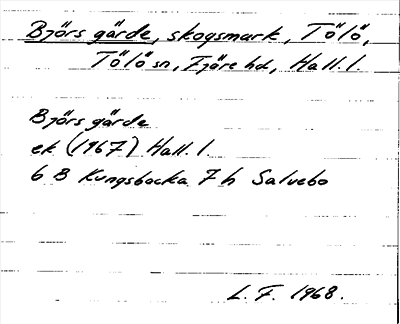 Björs gärde, skogsmark, Tölö,
Tölö sn, Fjäre hd, Hall. l.
Björs gärde
ek (1967) Hall. l.
6 B Kungsbacka 7 h Saluebo
L. F. 1968.